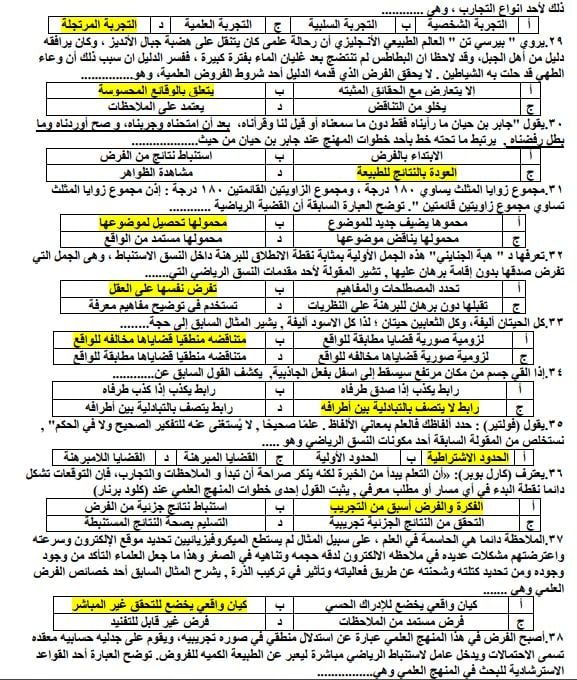 ذلك لأحد انواع التجارب ، وهي ............
أ التجربة الشخصية ب التجربة السلبية ج التجربة العلمية د التجربة المرتجلة
٢٩.يروي " بيرسي تن " العالم الطبيعي الأنجليزي أن رحالة علمى كان يتنقل على هضبة جبال الأنديز ، وكان يرافقه
دليل من أهل الجبل، وقد لاحظا ان البطاطس لم تنتضج بعد غليان الماء بفترة كبيرة ، ففسر الدليل ان سبب ذلك أن وعاء
الطهي قد حلت به الشياطين . لا يحقق الفرض الذي قدمه الدليل أحد شروط الفروض العلمية، وهو...............
أ الا يتعارض مع الحقائق المثبته ب يتعلق بالوقائع المحسوسة
ج يخلو من التناقض د يعتمد على الملاحظات
٣٠.يقول "جابر بن حيان ما رأيناه فقط دون ما سمعناه أو قيل لنا وقرأناه، بعد أن امتحناه وجربناه، و صح أوردناه وما
بطل رفضناه . يرتبط ما تحته خط بأحد خطوات المهنج عند جابر بن حيان من حيث..................
أ الابتداء بالفرض ب استنباط نتائج من الفرض
ج العودة بالنتائج للطبيعة د مشاهدة الظواهر
٣١.مجموع زوايا المثلث يساوي ١٨٠ درجة ، ومجموع الزاويتين القائمتين ١٨٠ درجة : إذن مجموع زوايا المثلث
تساوي مجموع زاويتين قائمتين ". توضح العبارة السابقة أن القضية الرياضية ............
أ محموها يضيف جديد للموضوع ب محمولها تحصيل لموضوعها
ج محمولها يناقض موضوعها د محمولها مستمد من الواقع
٣٢.تعرفها د " هبة الجنايني" هذه الجمل الأولية بمثابة نقطة الانطلاق للبرهنة داخل النسق الاستنباط ، وهى الجمل التي
تفرض صدقها بدون إقامة برهان عليها , تشير المقولة لأحد مقدمات النسق الرياضي التي.......
أ تحدد المصطلحات والمفاهيم ب تفرض نفسها على العقل
ج تقبلها دون برهان للبرهنة على النظريات د تستخدم في توضيح مفاهيم معرفة
٣٣.كل الحيتان أليفة، وكل الثعابين حيتان ؛ لذا كل الاسود أليفة , يشير المثال السابق إلى حجة........
أ لزومية صورية قضايا مطابقة للواقع ب متناقضه منطقيا قضاياها مخالفه للواقع
ج لزومية صورية قضاياها مخالفه للواقع د متناقضة منطقيا قضاياها مطابقة للواقع
٣٤.إذا القي جسم من مكان مرتفع سيسقط إلى اسفل بفعل الجاذبية, يكشف القول السابق عن............
أ رابط يكذب إذا صدق طرفاه ب رابط يكذب إذا كذب طرفاه
ج رابط لا يتصف بالتبادلية بين أطرافه د رابط يتصف بالتبادلية بين أطرافه
٣٥.يقول (فولتير) : حدد ألفاظك فالعلم بمعاني الألفاظ . علمًا صحيحًا , لا يُستغنى عنه للتفكير الصحيح ولا في الحكم" ,
نستخلص من المقولة السابقة أحد مكونات النسق الرياضي وهو .....
أ الحدود الاشتراطية ب الحدود الأولية ج القضايا المبرهنة د القضايا اللامبرهنة
٣٦.يعترف (كارل بوبر): «أن التعلم يبدأ من الخبرة لكنه ينكر صراحة أن تبدأ و الملاحظات والتجارب، فإن التوقعات تشكل
دائما نقطة البدء في أي مسار أو مطلب معرفي , يثبت القول إحدى خطوات المنهج العلمي عند (كلود برنار)
أ الفكرة والفرض أسبق من التجريب ب استنباط نتائج جزئية من الفرض
ج التحقق من النتائج الجزئية تجريبية د التسليم بصحة النتائج المستنبطة
٣٧.الملاحظة دائما هي الحاسمة في العلم ، على سبيل المثال لم يستطع الميكروفيزيائيين تحديد موقع الإلكترون وسرعته
واعترضتهم مشكلات عديده في ملاحظه الالكترون لدقه حجمه وتناهيه في الصغر وهذا ما جعل العلماء التأكد من وجود
وجوده ومن تحديد كتلته وشحنته عن طريق فعالياته وتأثير في تركيب الذرة , يشرح المثال السابق أحد خصائص الفرض
العلمي وهي .......
أ كيان واقعي يخضع للإدراك الحسي ب كيان واقعي يخضع للتحقق غير المباشر
ج فرض مستمد من الملاحظات د فرض غير قابل للتفنيد
٣٨.أصبح الفرض في هذا المنهج العلمي عبارة عن استدلال منطقي في صوره تجريبيه، ويقوم على جدليه حسابيه معقده
تسمى الاحتمالات ويدخل عامل لاستنباط الرياضي مباشرة ليعبر عن الطبيعة الكميه للفروض. توضح العبارة أحد القواعد
الاسترشادية للبحث في المنهج العلمي وهي................